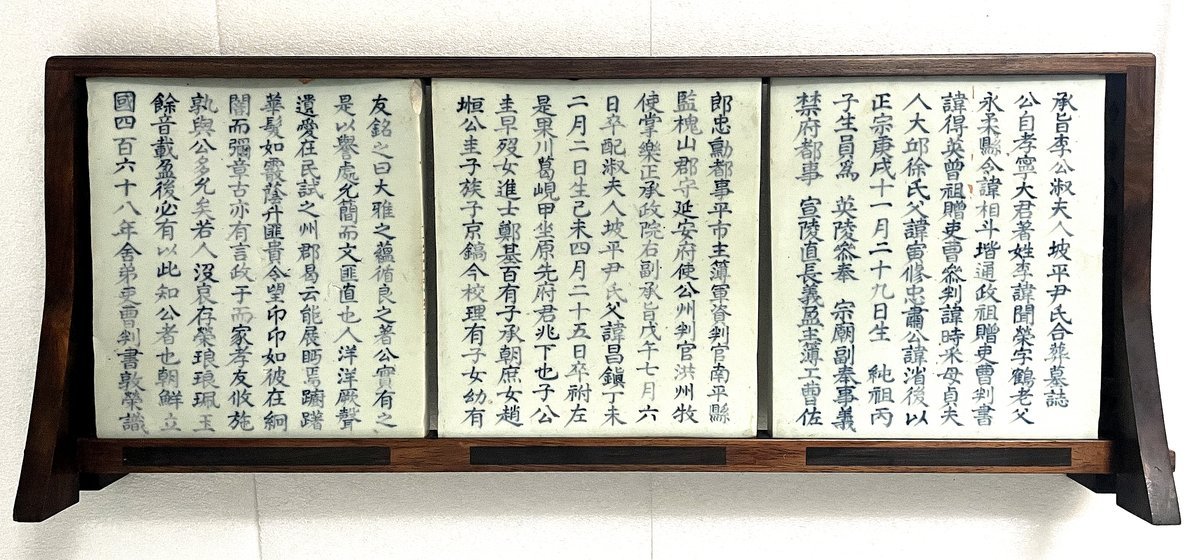 承旨李公淑夫人坡平尹氏合葬墓誌
公自孝寧大君著姓李諱聞榮字鶴老父
永柔縣令諱相斗堦通政祖贈吏曹判書
諱得英曾祖贈吏曹參判諱時采母貞夫
人大邱徐氏父諱寅修忠肅公諱渻後以
正宗庚戌十一月二十九日生 純祖丙
子生員爲 英陵叅奉 宗廟副奉事義
禁府都事 宣陵直長義盈主簿工曹佐
郎忠勳都事平市主簿軍資判官南平縣
監槐山郡守延安府使公州判官洪州牧
使掌樂正承政院右副承旨戊午七月六
日卒配淑夫人坡平尹氏父諱昌鎭丁未
二月二日生己未四月二十五日卒祔左
是果川葛峴甲坐原先府君兆下也子公
圭早歿女進士鄭基百有子承朝庶女趙
恒公圭子族子京鎬今校理有子女幼有
友銘之曰大雅之蘊循良之著公實有之
是以譽處允簡而文匪直也人洋洋厥聲
遺愛在民試之州郡易云能展眄焉躕躇
華髮如霰蔭升匪貴令望卬卬如彼在絅
闇而彌章古亦有言政于而家孝友攸施
孰與公多允矣若人沒哀存榮琅琅珮玉
餘音載盈後必有以此知公者也朝鮮立
國四百六十八年舍弟吏曹判書敦榮識